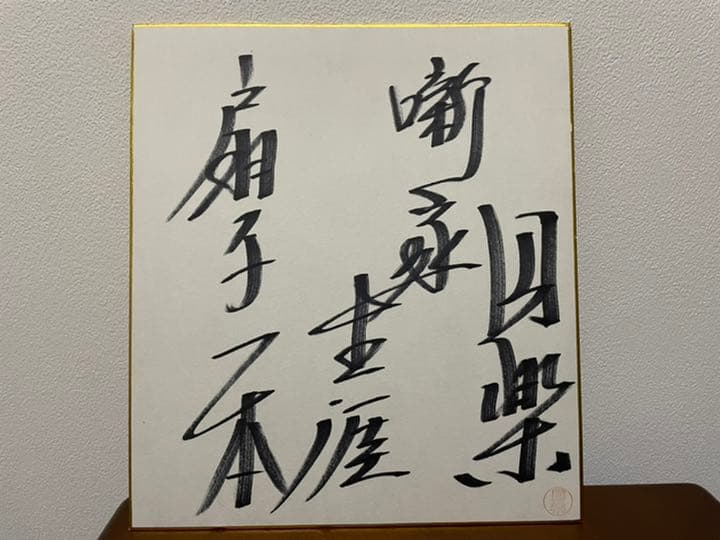 円楽
噺家
生涯
扇子一本